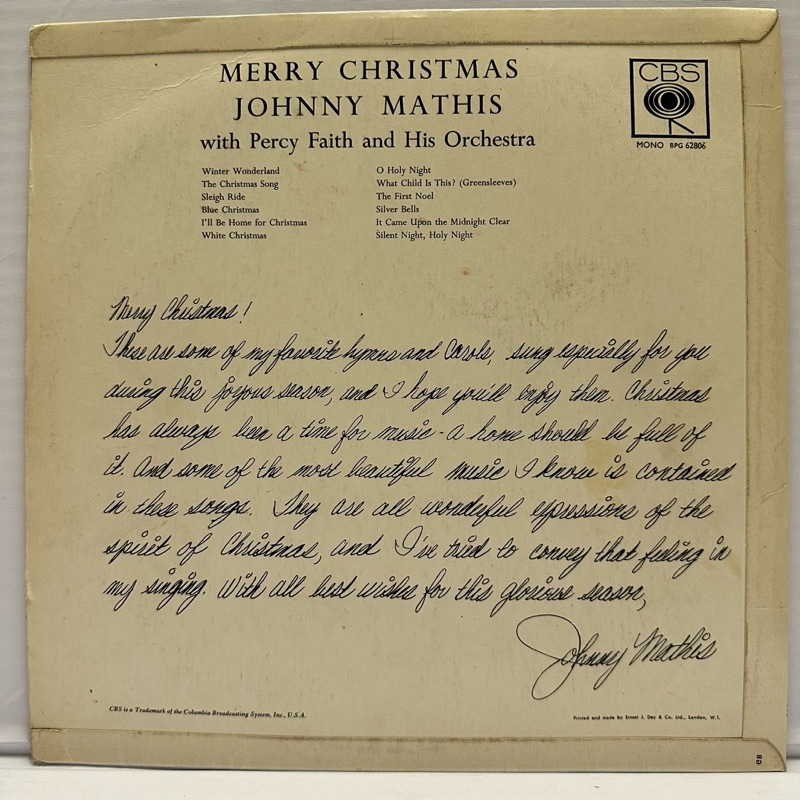 MERRY CHRISTMAS
JOHNNY MATHIS
with Percy Faith and His Orchestra
CBS
MONO BPG 62806
Winter Wonderland
The Christmas Song
Sleigh Ride
Blue Christmas
I'll Be Home for Christmas
White Christmas
O Holy Night
What Child Is This? (Greensleeves)
The First Noel
Silver Bells
It Came Upon the Midnight Clear
Silent Night, Holy Night
Merry Christmas!
These are some of my favorite hymns and Carols, sung especially for you
during this joyous season, and I hope you'll enjoy them. Christmas
has always been a time for music - a home should be full of
it. And some of the most beautiful music I know is contained
in these songs. They are all wonderful expressions of the
spirit of Christmas, and I've tried to convey that feeling in
my singing. With all best wishes for this glorious season,
Johnny Mathis
CBS is a Trademark of the Columbia Broadcasting System, Inc., U.S.A.
Printed and made by Ernest J. Day & Co. Ltd., London, W.1.
CB